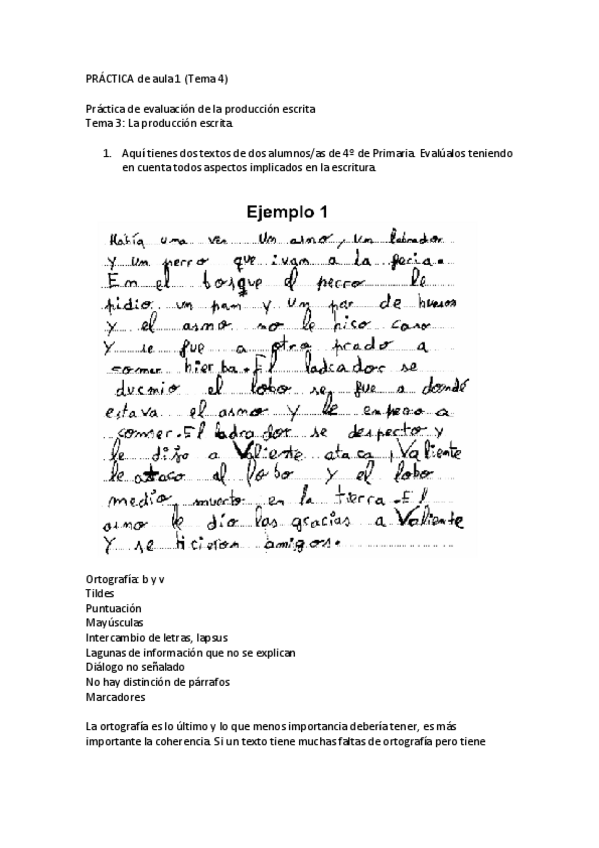 PRÁCTICA de aula 1 (Tema 4)
Práctica de evaluación de la producción escrita
Tema 3: La producción escrita.
1. Aquí tienes dos textos de dos alumnos/as de 4º de Primaria. Evalúalos teniendo
en cuenta todos aspectos implicados en la escritura.
Ejemplo 1
Había una vez un asno, un labrador
y un perro que ivan a la feria.
En el bosque el perro le
pidio un pan y un par de huesos
y el asmo no le hico caso
Y se fue a otro prado a
comer hierba. El ladrador se
durmio el lobo se fue a dondé
estava el asmo y le empezo a
comser. El ladrador se desperto y
le dijo a Valiente ataca, Valiente
le ataco al lobo y el lobo
medio muerto en la tierra. El
asno le dío las gracias a Valiente
Y se hicieron amigos.
Ortografía: b y v
Tildes
Puntuación
Mayúsculas
Intercambio de letras, lapsus
Lagunas de información que no se explican
Diálogo no señalado
No hay distinción de párrafos
Marcadores
La ortografía es lo último y lo que menos importancia debería tener, es más
importante la coherencia. Si un texto tiene muchas faltas de ortografía pero tiene